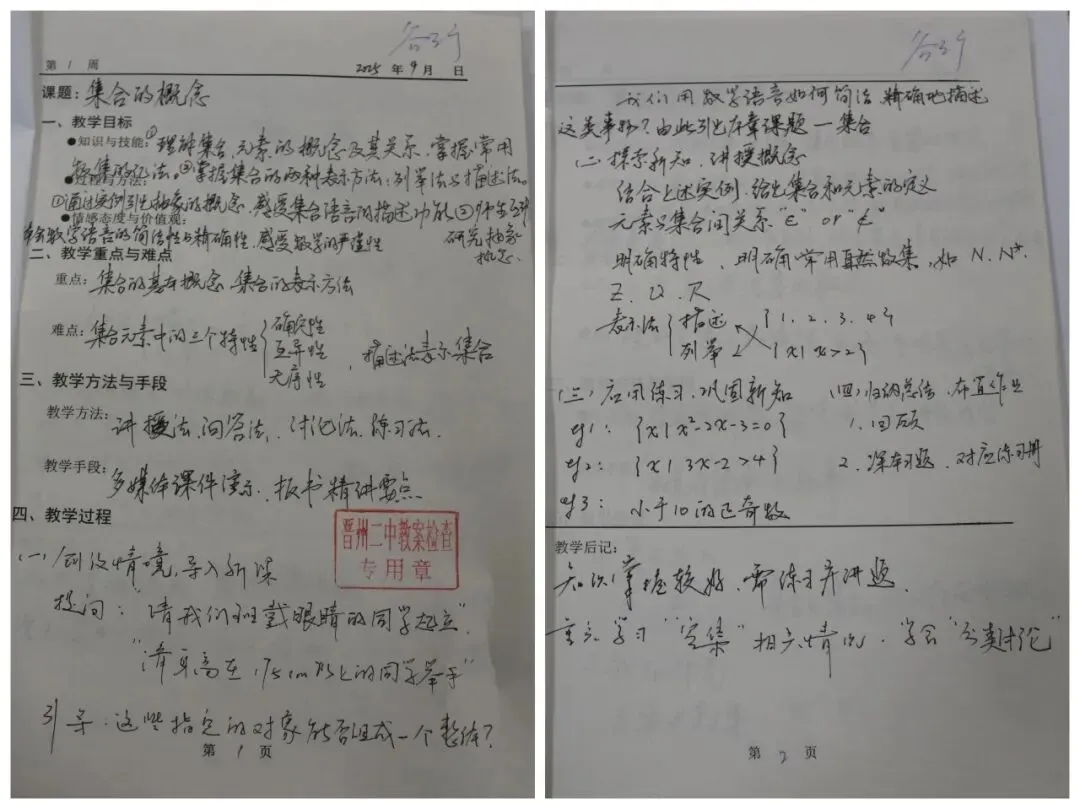 第1周
2025年9月 日
课题：集合的概念
一、教学目标
●知识与技能：①理解集合、元素的概念及其关系，掌握常用
数集的记法。②掌握集合的两种表示方法：列举法与描述法。
●过程与方法：
①通过实例引出抽象的概念，感受集合语言的描述功能②师生互动
●情感态度与价值观：
研究抽象
数学语言的简洁性与精确性，感受数学的严谨性
概念.
二、教学重点与难点
重点：集合的基本概念、集合的表示方法
难点：集合元素中的三个特性{确定性
互异性
无序性，描述法表示集合
三、教学方法与手段
教学方法：讲授法、问答法、讨论法、练习法.
教学手段：多媒体课件演示、板书精讲要点
四、教学过程
(一)创设情境，导入新课
提问："请我们班戴眼睛的同学起立"
"请身高在175cm以上的同学举手"
引导：这些指定的对象能否组成一个整体？
晋州二中教案检查
专用章
第1页
我们用数学语言如何简洁、精确地描述
这类事物？由此引出本章课题一集合
(二)探索新知，讲授概念
结合上述实例，给出集合和元素的定义
元素与集合间关系"∈" or "∉"
明确特性，明确常用自然数集，如 N、N*、
Z、Q、R
表示法{描述 {1、2、3、4}
列举 {x|x>2}
(三)应用练习、巩固新知
eg1： {x|x²-2x-3=0}
eg2： {x|3x-2>4}
eg3： 小于10的正奇数
(四)归纳总结、布置作业
1、回顾
2、课本习题、对应练习册
教学后记：
知识掌握较好，需练习并讲题.
重点学习"空集"相关情况，学会"分类讨论"
第2页